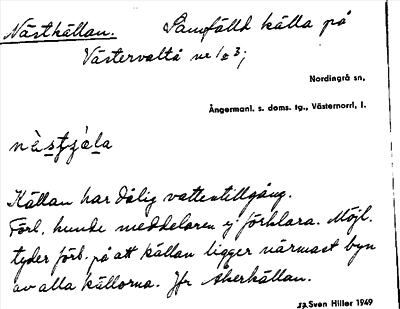 Nästkällan. Samfälld källa på
Västervalta nr 1 o 3;
Nordingrå sn,
Ångermanl. s. doms. tg., Västernorrl, l.
Källan har dålig vattentillgång.
Förl. kunde meddelaren ej förklara. Möjl.
tyder förl. på att källan ligger närmast byn
av alla källorna. Jfr Åkerkällan.
Sven Hiller 1949